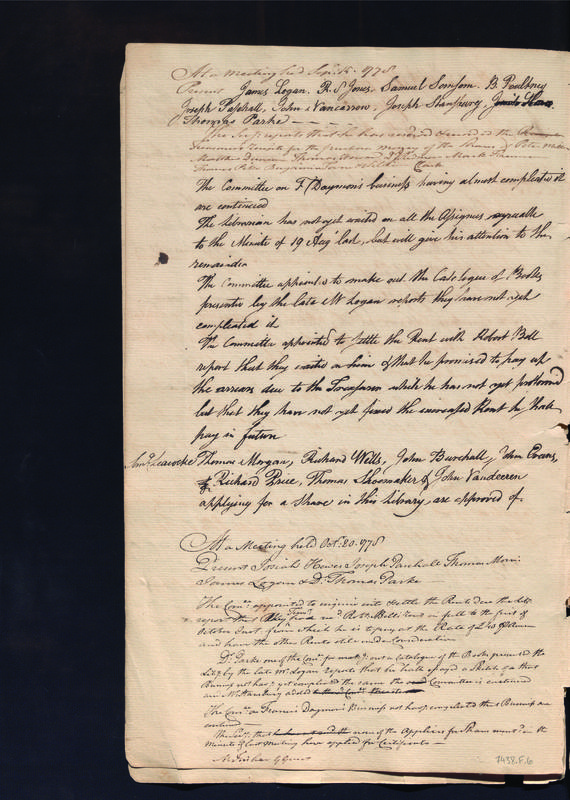 At a Meeting held Sept. 1778
Present James Logan, R. S. Jones, Samuel Sansom, B. Poultney
Joseph Paschall, John Nancarrow, Joseph Stansbury,
Thomas Parke
The reports that he has received the
for the of the Shares of Peter
Matthew Thomas
Francis Benjamin
The Committee on F. Daymon's business having almost compleated it
are continued
The Librarian has not yet waited on all the Assignees agreeable
to the Minute of 19 Aug. last, but will give his attention to the
remainder
The Committee appointed to make out the Catalogue of Books
presented by the late Mr Logan reports they have not yet
compleated it
The Committee appointed to settle the Rent with Robert Bell
report that they waited on him & that he promised to pay up
the arrears due to the Treasurer which he has not yet performed
but that they have not yet fixed the increased Rent he shall
pay in future
Leacock Thomas Morgan, Richard Wells, John Burchall, John Evans,
& Richard Price, Thomas Shoemaker & John Vandeeren
applying for a share in this Library, are approved of
At a Meeting held Oct. 20. 1778
Present Josiah Hewes Joseph Paschall Thomas Morris
James Logan & Dr. Thomas Parke
The Comee. appointed to inquire into & settle the Rents due the
report that they have recd. Robt. Bell's in full to the first of
October Inst. from which he is to pay at the Rate of
and have the other Rents still under Consideration
Dr. Parke one of the Comee. for making out a Catalogue of the Books presented the
Liby. by the late Mr. Logan reports that he hath a Sketch of that
Business not having yet compleated the same the Committee is continued
and Mr. Stansbury added
The Comee. on Francis Daymon's Business not having compleated that Business are
continued
that none of the Appliers for Shares in the
Minute of last Meeting have applied for Certificates
7438.F.6